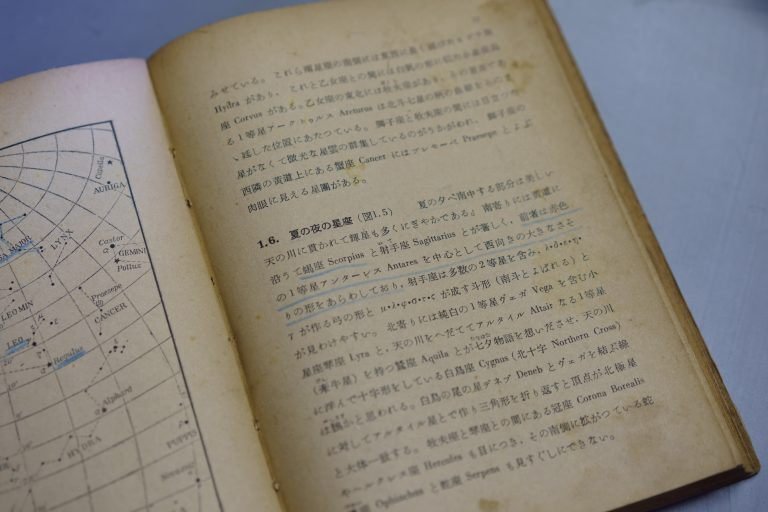 みせている。これら
Hydra があり、これと乙女座との間には
座 Corvus がある。乙女座の東北には牧夫座があり、その首座であ
る1等星アークトゥルス Arcturus は北斗七星の柄の曲線を
した位置にあたつている。獅子座と牧夫座の間には目立つ
星がなくて微光な星雲の群集しているのがうかがわれ、獅子座の
西隣の黄道上にある蟹座 Cancer にはプレセーペ Praesepe とよぶ
肉眼に見える星團がある。
1.6. 夏の夜の星座 (図1.5) 夏の夕べ南中する部分は美しい
天の川に貫かれて輝星も多くにぎやかである。南寄りには黄道に
沿うて蝎座 Scorpius と射手座 Sagittarius とが著しく、前者は赤色
の1等星アンターレス Antares を中心として西向きの大きなさそ
りの形をあらわしており、射手座は多数の2等星を含み、
γ が作る弓の形と μ•λ•φ•σ•τ•ζ が成す斗形 (南斗とよばれる) と
が見わけやすい。北寄りには純白の1等星ヴェガ Vega を含む小
星座琴座 Lyra と、天の川をへだててアルタイル Altair なる1等星
(牽牛星) を持つ鷲座 Aquila とが七夕物語を想いださせ、天の川
に浮んで十字形をしている白鳥座 Cygnus (北十字 Northern Cross)
は鵲かと思われる。白鳥の尾の星デネブ Deneb とヴェガを結ぶ線
に対してアルタイル星とで作り三角形を折り返すと頂点が北極星
と大体一致する。牧夫座と琴座との間にある冠座 Corona Borealis
やヘルクレス座 Hercules も目につき、その南側に拡がつている蛇
座 Ophiuchus と蛇座 Serpens も見すぐしにできない。
Capella
AURIGA
MAJOR
LYNX
Castor
GEMINI
Pollux
Praesepe
LEO MIN
CANCER
LEO
Regulus
Alphard
HYDRA
PUPPIS